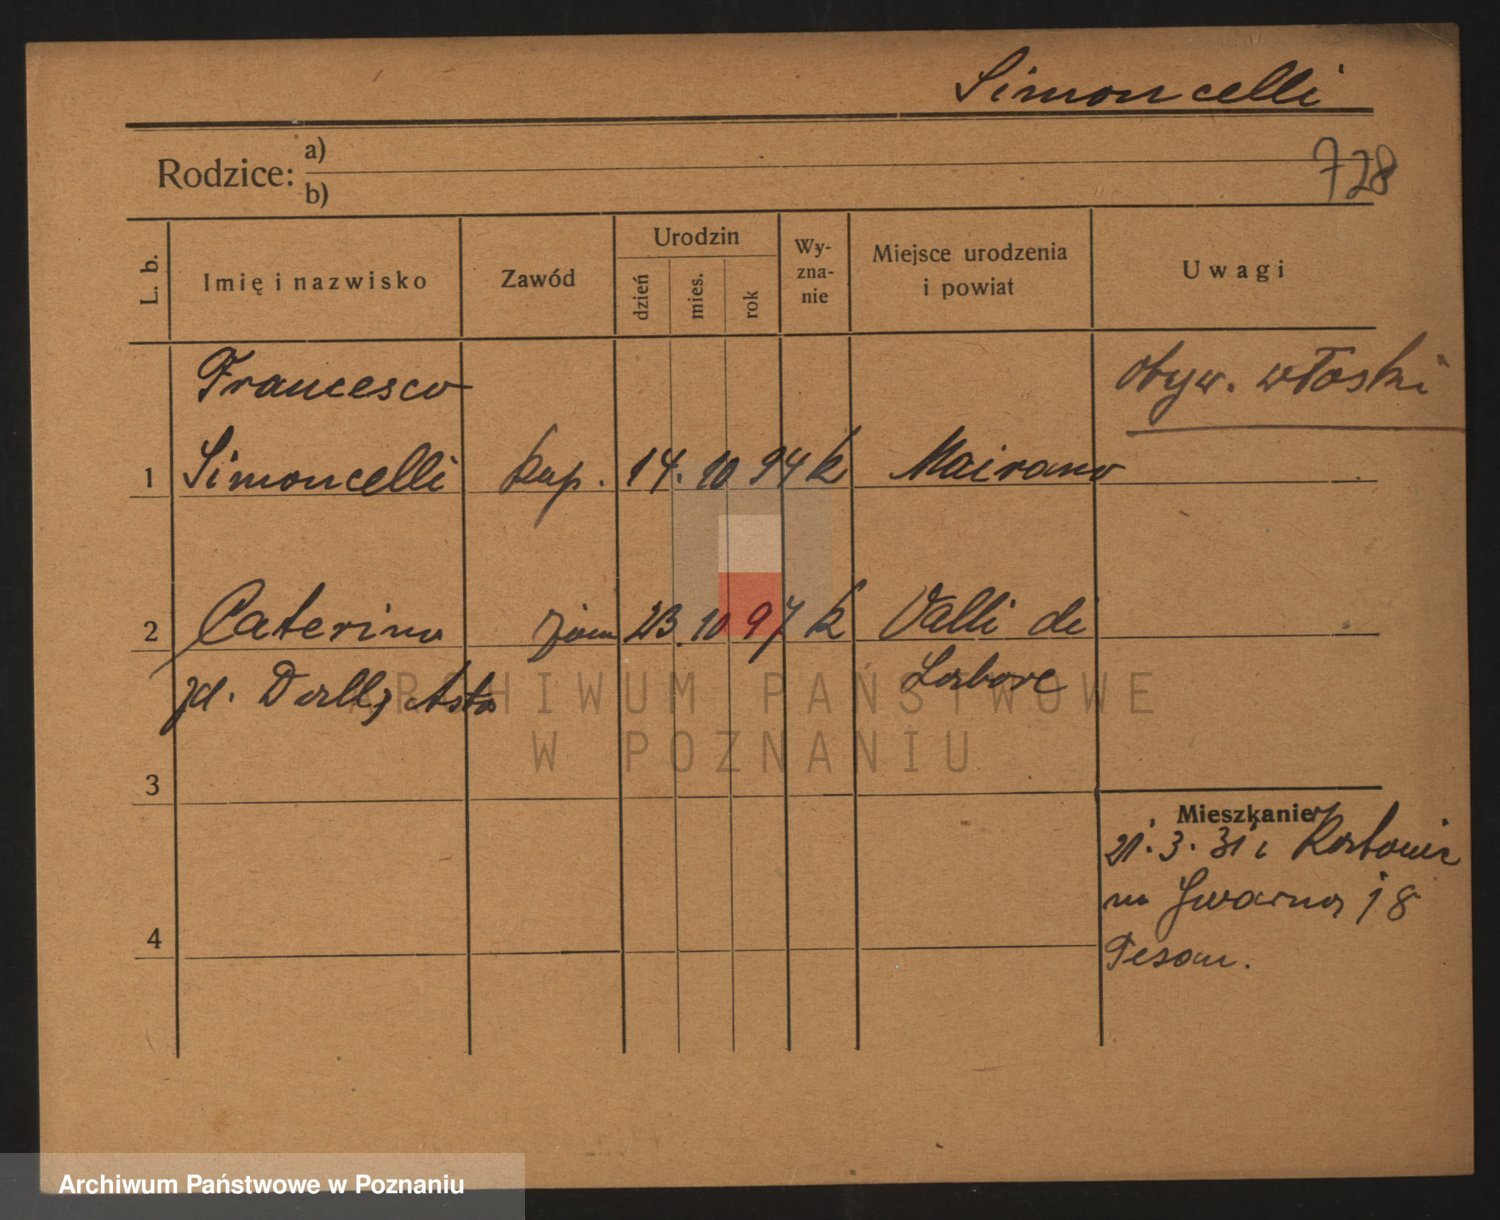 Simoncelli
728
Rodzice: a)
b)
L. b. Imię i nazwisko Zawód Urodzin dzień mies. rok Wy-zna-nie Miejsce urodzenia i powiat Uwagi
Francesco obyw. włoski
1 Simoncelli kup. 14. 10 94 k Mairano
2 Caterina żona 23. 10 97 k Valli di
zd. Dall Asta
3
Mieszkanie
21.3.31 z Katowic
na Gwarna 18
4
ARCHIWUM PAŃSTWOWE
W POZNANIU
Archiwum Państwowe w Poznaniu